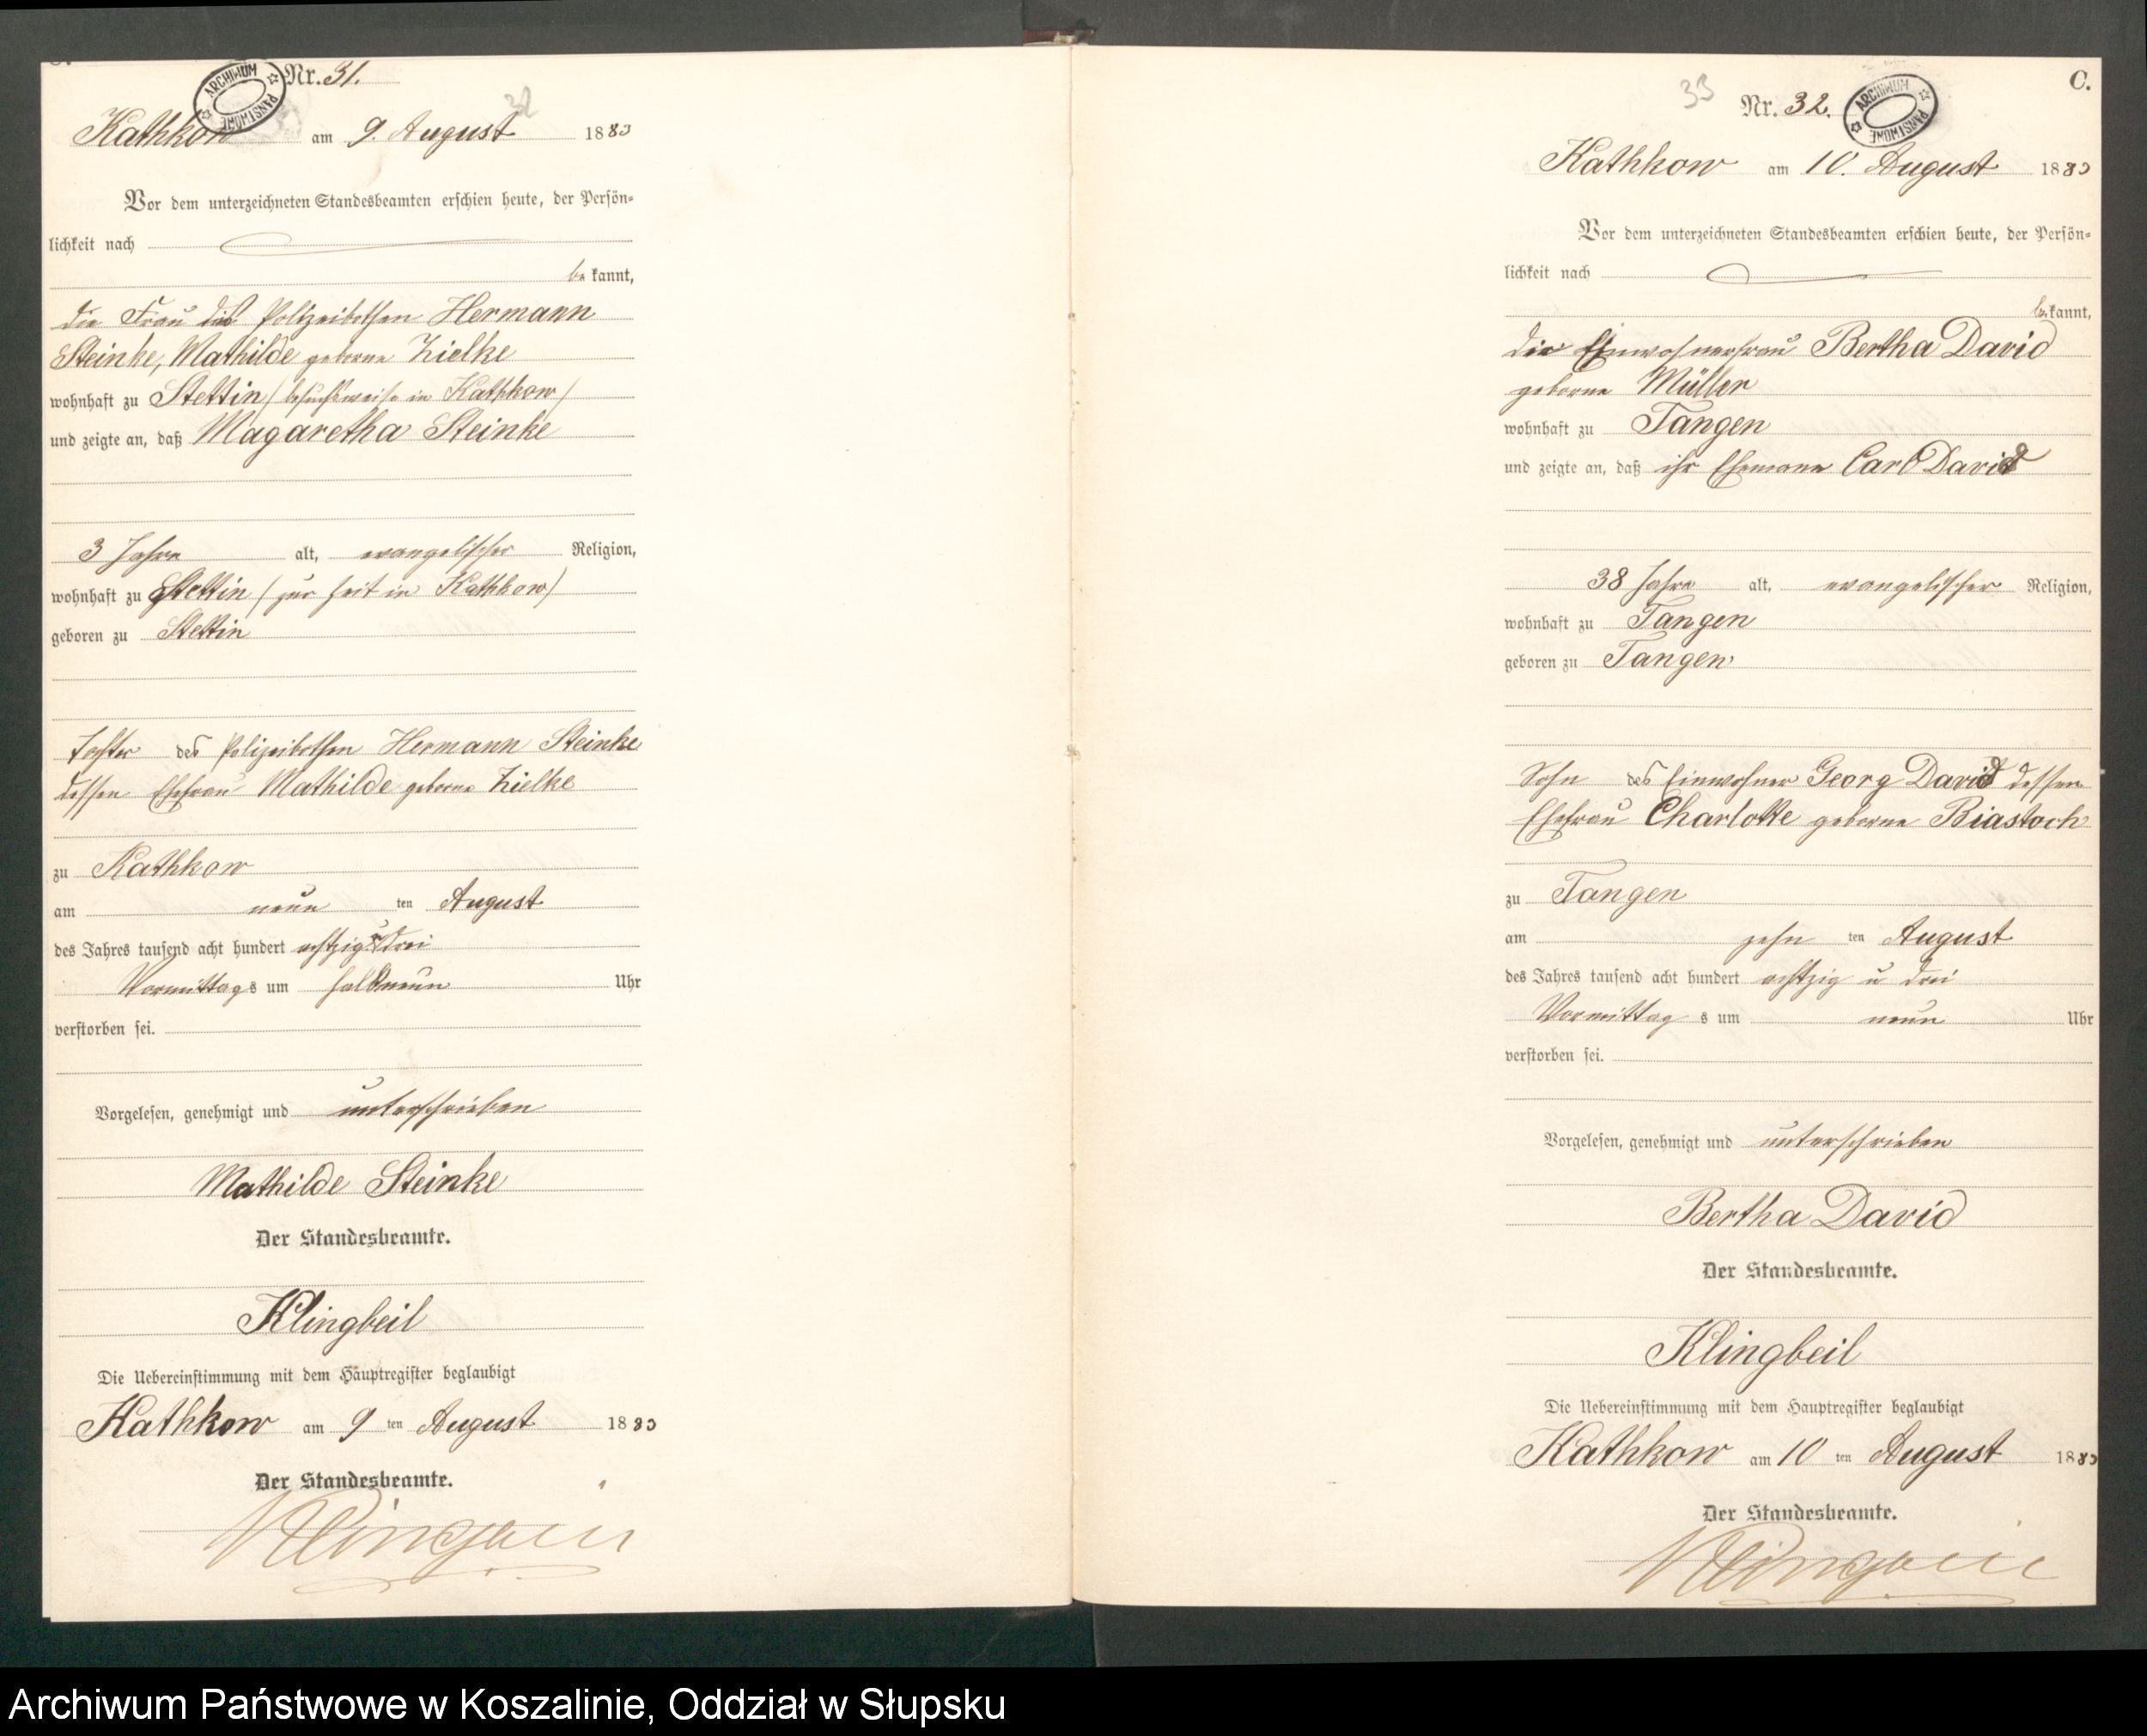 Nr. 31.
32
ARCHIWUM PAŃSTWOWE
Kathkow am 9. August 1883
Vor dem unterzeichneten Standesbeamten erschien heute, der Persön-
lichkeit nach
be kannt,
die Frau des Polizeibothen Hermann
Steinke, Mathilde geborne Zielke
wohnhaft zu Stettin / besuchsweise in Kathkow /
und zeigte an, daß Magaretha Steinke
3 Jahre alt, evangelischer Religion,
wohnhaft zu Stettin / zur Zeit in Kathkow /
geboren zu Stettin
Tochter des Polizeibothen Hermann Steinke
dessen Ehefrau Mathilde geborne Zielke
zu Kathkow
am neun ten August
des Jahres tausend acht hundert achtzig u drei
Vormittags um halbneun Uhr
verstorben sei.
Vorgelesen, genehmigt und unterschrieben
Mathilde Steinke
Der Standesbeamte.
Klingbeil
Die Uebereinstimmung mit dem Hauptregister beglaubigt
Kathkow am 9 ten August 1883
Der Standesbeamte.
Klingbeil
C.
33
Nr. 32.
ARCHIWUM PAŃSTWOWE
Kathkow am 10. August 1883
Vor dem unterzeichneten Standesbeamten erschien heute, der Persön-
lichkeit nach
be kannt,
die Einwohnerfrau Bertha David
geborne Müller
wohnhaft zu Tangen
und zeigte an, daß ihr Ehemann Carl David
38 Jahre alt, evangelischer Religion,
wohnhaft zu Tangen
geboren zu Tangen
Sohn des Einwohner Georg David dessen
Ehefrau Charlotte geborne Biastoch
zu Tangen
am zehn ten August
des Jahres tausend acht hundert achtzig u drei
Vormittag s um neun Uhr
verstorben sei.
Vorgelesen, genehmigt und unterschrieben
Bertha David
Der Standesbeamte.
Klingbeil
Die Uebereinstimmung mit dem Hauptregister beglaubigt
Kathkow am 10 ten August 1883
Der Standesbeamte.
Klingbeil
Archiwum Państwowe w Koszalinie, Oddział w Słupsku